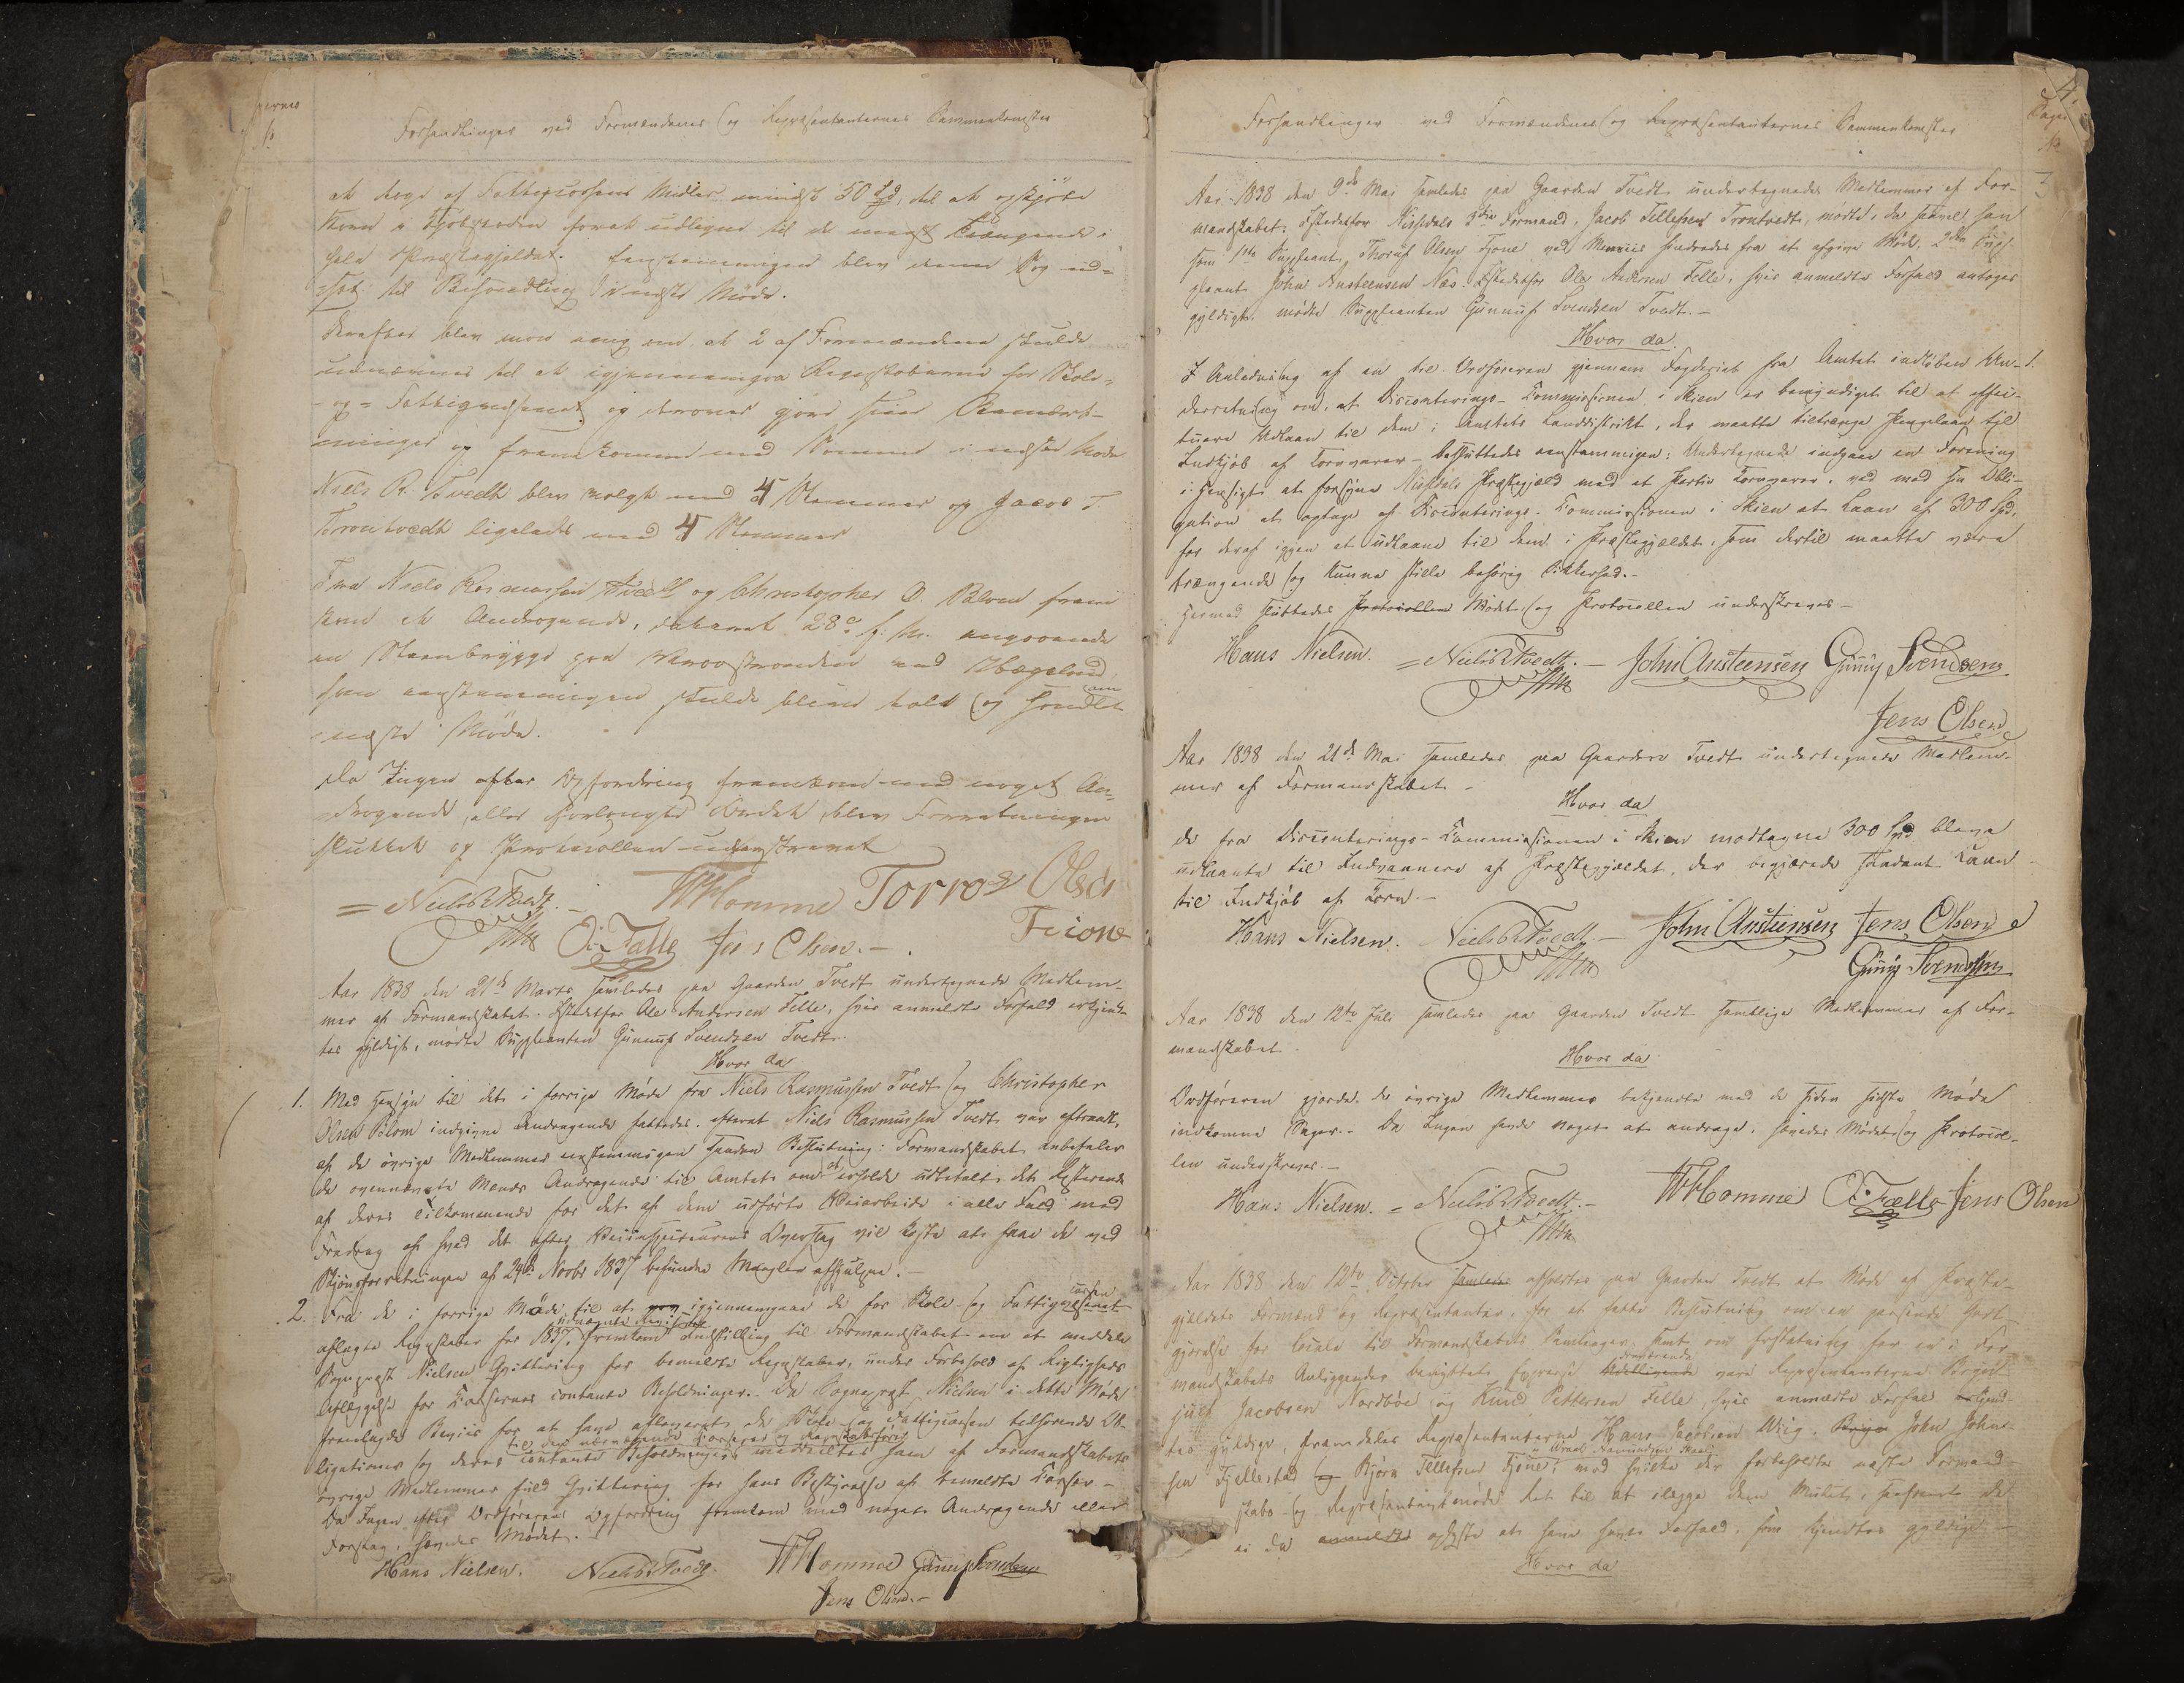 Forhandlinger ved Formændenes og Repræsentanternes Sammenkomster
at tage af Fattigcassens Midler mindst 50 Spd, til at opkjöbe
Korn i forat udligne til de mest trængende i
hele Præstegjeldet. Eenstemmigen blev denne Sag ud-
sat til Behandling i næste Möde.
Derefter blev man enig om at 2 af Formændene skulde
udnævnes til at igjennemgaa Regnskaberne for Skole-
og Fattigvæsenet og derover gjøre sine Bemærk-
ninger og fremkomme med Samme i næste Möde
Niels R. Tvedt blev valgt med 4 Stemmer og Jacob T
Trontvedt ligeledes med 4 Stemmer
Fra Niels Rasmussen Tvedt og Christopher O. frem
kom et Andragende, dateret 28de f. M. angaaende
en ved
som eenstemmigen skulde blive holdt og handlet om
næste Möde.
Da Ingen efter Opfordring fremkom med noget An-
dragende, eller forlangte Ordet, blev Forretningen
sluttet og Protocollen understrevet
Niels R Tvedt. THomme Torroe Olsen
Feione
O. A. Fælle Jens Olsen.
Aar 1838 den 21de Marts samledes paa Gaarden Tvedt undertegnede Medlem-
mer af Formandskabet. Istedetfor Ole Andersen Felle, hvis anmeldte Forfald erkjend-
tes gyldigt, mødte Suppleanten Gunnuf Svendsen Tvedt.
Hvor da
1. Med Hensyn til det i forrige Möde fra Niels Rasmussen Tvedt og Christopher
Olsen indgivne Andragende fattedes, efterat Niels Rasmussen Tvedt var aftraadt,
af de övrige Medlemmer eenstemmigen saadan Beslutning: Formandskabet anbefaler
de ovennævnte Mænds Andragende til Amtet om at erholde udbetalt det Resterende
af deres Tilkommende for det af dem udførte Veiarbeide i alle Fald med
Fradrag af hvad det efter Veiinspecteurens Overslag vil koste at faae de ved
Skjönsforretningen af 24de Novbr 1837 befundne Mangler afhjulpne.
2. Fra de i forrige Möde til at igjennemgaae de for Skole- og Fattigcassen
aflagte Regnskaber for 1837 udnævnte Revisorer fremkom Indstilling til Formandskabet om at meddele
Sognepræst Nielsen Qvittering for bemeldte Regnskaber, under Forbehold af Rigtigheds
Aflæggelse for Cassernes contante Beholdninger. Da Sognepræst Nielsen i dette Möde
fremlagde Beviis for at have afleveret de Skole- og Fattigcassen tilhørende Ob-
ligationer og deres contante Beholdninger til den Casserer og Regnskabsfører meddeltes ham af Formandskabets
övrige Medlemmer fuld Qvittering for hans Bestyrelse af bemeldte Casser.
Da Ingen efter Ordförerens Opfordring fremkom med noget Andragende eller
Forslag, hævedes Mødet.
Hans Nielsen. Niels R Tvedt. THomme Gunuf Svendsen
Jens Olsen.
Forhandlinger ved Formændenes og Repræsentanternes Sammenkomster
4.
Sager
No
Aar 1838 den 9de Mai samledes paa Gaarden Tvedt undertegnede Medlemmer af For-
mandskabet. Istedetfor Nissedals 3die Formand, Jacob Tellefsen Trontvedt, mødte, da saavel han
som 1ste Suppleant Thoruf Olsen Fjone ved hindredes fra at afgive Möde, 2den Sup-
pleant John Austeensen Næs. Istedetfor Ole Andersen Felle, hvis anmeldte Forfald antoges
gyldigt, mødte Suppleanten Gunnuf Svendsen Tvedt.
Hvor da.
I Anledning af en til Ordföreren gjennem Fogderiet fra Amtet indløben Un- 1.
derretning om, at Disconterings-Commissionen i Skien er bemyndiget til at effec-
tuere Udlaan til dem i Amtets Landdistrikt, der maatte tiltrænge Pengelaan til
Indkjöb af Kornvarer – besluttedes eenstemmigen: Undertegnede indgaae en Forening
i Hensigt at forsyne Nissedals Præstegjeld med et Partie Kornvarer, ved mod sin Obli-
gation at optage af Disconterings-Commissionen i Skien et Laan af 300 Spd,
for deraf igjen at udlaane til dem i Præstegjeldet, som dertil maatte være
trængende og kunne stille behörig Sikkerhed.
Hermed sluttedes Protocollen Mødet og Protocollen underskreves
Hans Nielsen. Niels R Tvedt. John Austeensen Gunuf Svendsen
Jens Olsen
Aar 1838 den 21de Mai samledes paa Gaarden Tvedt undertegnede Medlem-
mer af Formandskabet.
Hvor da
de fra Disconterings-Commissionen i Skien modtagne 300 Spd bleve
udlaante til Indvaanere af Præstegjeldet, der begjærede saadant Laan
til Indkjöb af Korn.
Hans Nielsen. Niels R Tvedt John Austeensen Jens Olsen
Gunuf Svendsen
Aar 1838 den 12te Juli samledes paa Gaarden Tvedt samtlige Medlemmer af For-
mandskabet.
Hvor da
Ordföreren gjorde de övrige Medlemmer bekjendte med de siden sidste Møde
indkomne Sager. Da Ingen havde noget at andrage, hævedes Mødet og Protocol-
len underskreves.
Hans Nielsen. Niels R Tvedt. THomme O. A. Fælle Jens Olsen
Aar 1838 den 12te October samledes afholdtes paa Gaarden Tvedt et Møde af Præste-
gjeldets Formænd og Repræsentanter, for at fatte Beslutning om en passende Godt-
gjörelse for Locale til Formandskabets Samlinger, samt om Erstatning for en i For-
mandskabets Anliggender benyttet Expresse. Fraværende vare Repræsentanterne
Jacobsen Nordböe og Knud Pettersen Felle, hvis anmeldte Forfald erkjend-
tes gyldige, fremdeles Repræsentanterne Hans Jacobsen Wiig, John John-
sen Fjellestad og Björn Tellefsen Fjone, mod hvilke der forbeholdtes næste Formand-
skabs- og Repræsentantmøde Ret til at ilægge dem Mulct, saafremt de
ei da anmeldte oplyste at have havt Forfald, som kjendtes gyldigt.
Hvor da